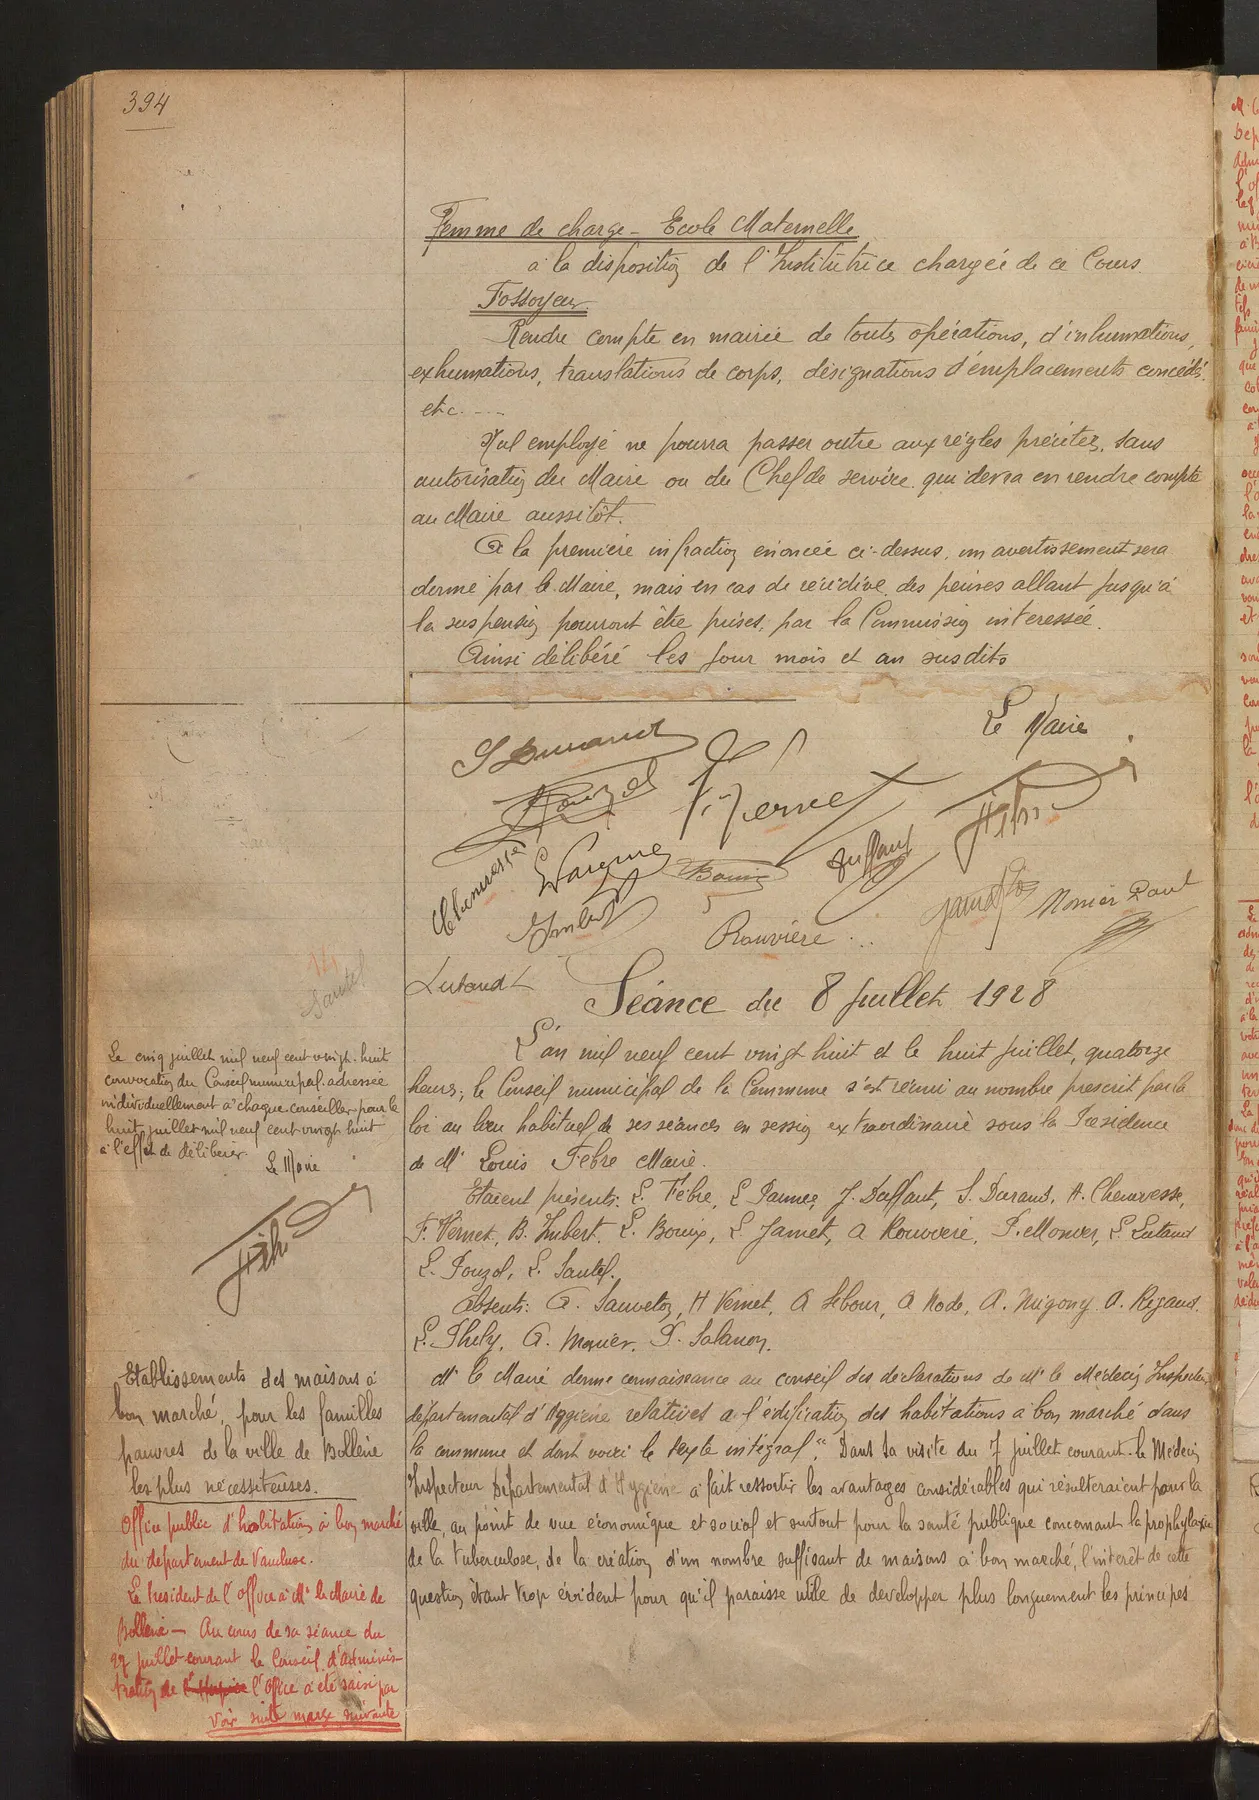 394
Femme de charge - Ecole Maternelle
à la disposition de l'Institutrice chargée de ce Cours.
Fossoyeur.
Rendre compte en mairie de toutes opérations, d'inhumations,
exhumations, translations de corps, désignations d'emplacements concédés.
etc.....
Nul employé ne pourra passer outre aux règles précitées, sans
autorisation du Maire ou du Chef de service qui devra en rendre compte
au Maire aussitôt.
A la première infraction énoncée ci-dessus, un avertissement sera
donné par le Maire, mais en cas de récidive des peines allant jusqu'à
la suspension pourront être prises, par la Commission interessée.
Ainsi délibéré les jour mois et an susdits
Le Maire
S Durand
Pouzol
F. Vernet
Chenevesse
L Pannee
Bouix
Duffaut
Imbert
Rouvière...
Jamet
Monier Paul
Lutaud L
Santel
Séance du 8 Juillet 1928
Le cinq juillet mil neuf cent vingt-huit
convocation du Conseil municipal adressée
individuellement à chaque conseiller pour le
huit juillet mil neuf cent vingt huit
à l'effet de délibérer.
Le Maire
L'an mil neuf cent vingt huit et le huit Juillet, quatorze
heures, le Conseil municipal de la Commune s'est réuni au nombre prescrit par la
loi au lieu habituel de ses séances en session extraordinaire sous la Présidence
de Mr Louis Fèbre Maire.
Etaient présents: L. Fèbre, L Pannee, J. Duffaut, S. Durand, H. Chenevesse,
F. Vernet, B. Imbert, L. Bouix, L. Jamet, A Rouvière, P. Monier, L. Lutaud
L. Pouzol, L. Santel.
Absents: A. Sauveton, H Vernet, A Lebour, A Node, A. Migony, A. Rigaud,
L. Phely, A. Monier, P. Salanon.
Etablissements des maisons à
bon marché, pour les familles
pauvres de la ville de Bollène
les plus nécessiteuses.
Mr le Maire donne connaissance au conseil des déclarations de Mr le Médecin Inspecteur
départemental d'Hygiène relatives à l'édification des habitations à bon marché dans
la commune et dont voici le texte intégral "Dans sa visite du 7 juillet courant le Médecin
Inspecteur Départemental d'Hygiène a fait ressortir les avantages considérables qui résulteraient pour la
ville, au point de vue économique et social et surtout pour la santé publique concernant la prophylaxie
de la tuberculose, de la création d'un nombre suffisant de maisons à bon marché, l'intérêt de cette
question étant trop évident pour qu'il paraisse utile de développer plus longuement les principes
Office public d'habitations à bon marché
du département de Vaucluse.
Le Président de l'Office à Mr le Maire de
Bollène - Au cours de sa séance du
27 juillet courant le Conseil d'adminis-
tration de l'Hospice l'Office a été saisi par
Voir suite marge suivante